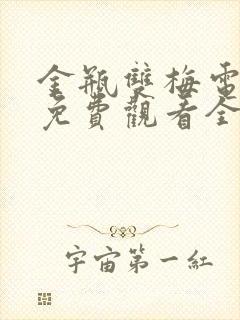 金瓶雙梅電
免費觀看全
宇宙第一紅